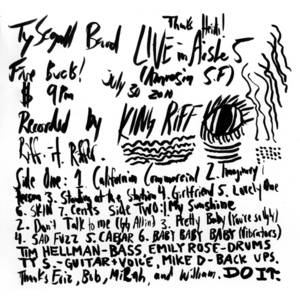 Ty Segall Band
Thanks Heidi!
LIVE in Aisle 5
Five Bucks!
(Amnesia S.F)
$ 9 Pm
July 30 2011
Recorded by KING RIFF
Side One: 1. California Commercial 2. Imaginary
Person 3. Standing at the Station 4. Girlfriend 5. Lovely One
6. SKIN 7. Cents Side TWO: 1 My Sunshine
2. Don't Talk to me (GG Allin) 3. Pretty Baby
4. SAD FUZZ 5. CAESAR 6. BABY BABY BABY (Vibrators)
TIM HELLMAN-BASS EMILY ROSE-DRUMS
TY S.-GUITAR+VOICE, MIKE D-BACK UPS.
Thanks Eric, Bob, and William. DO IT.